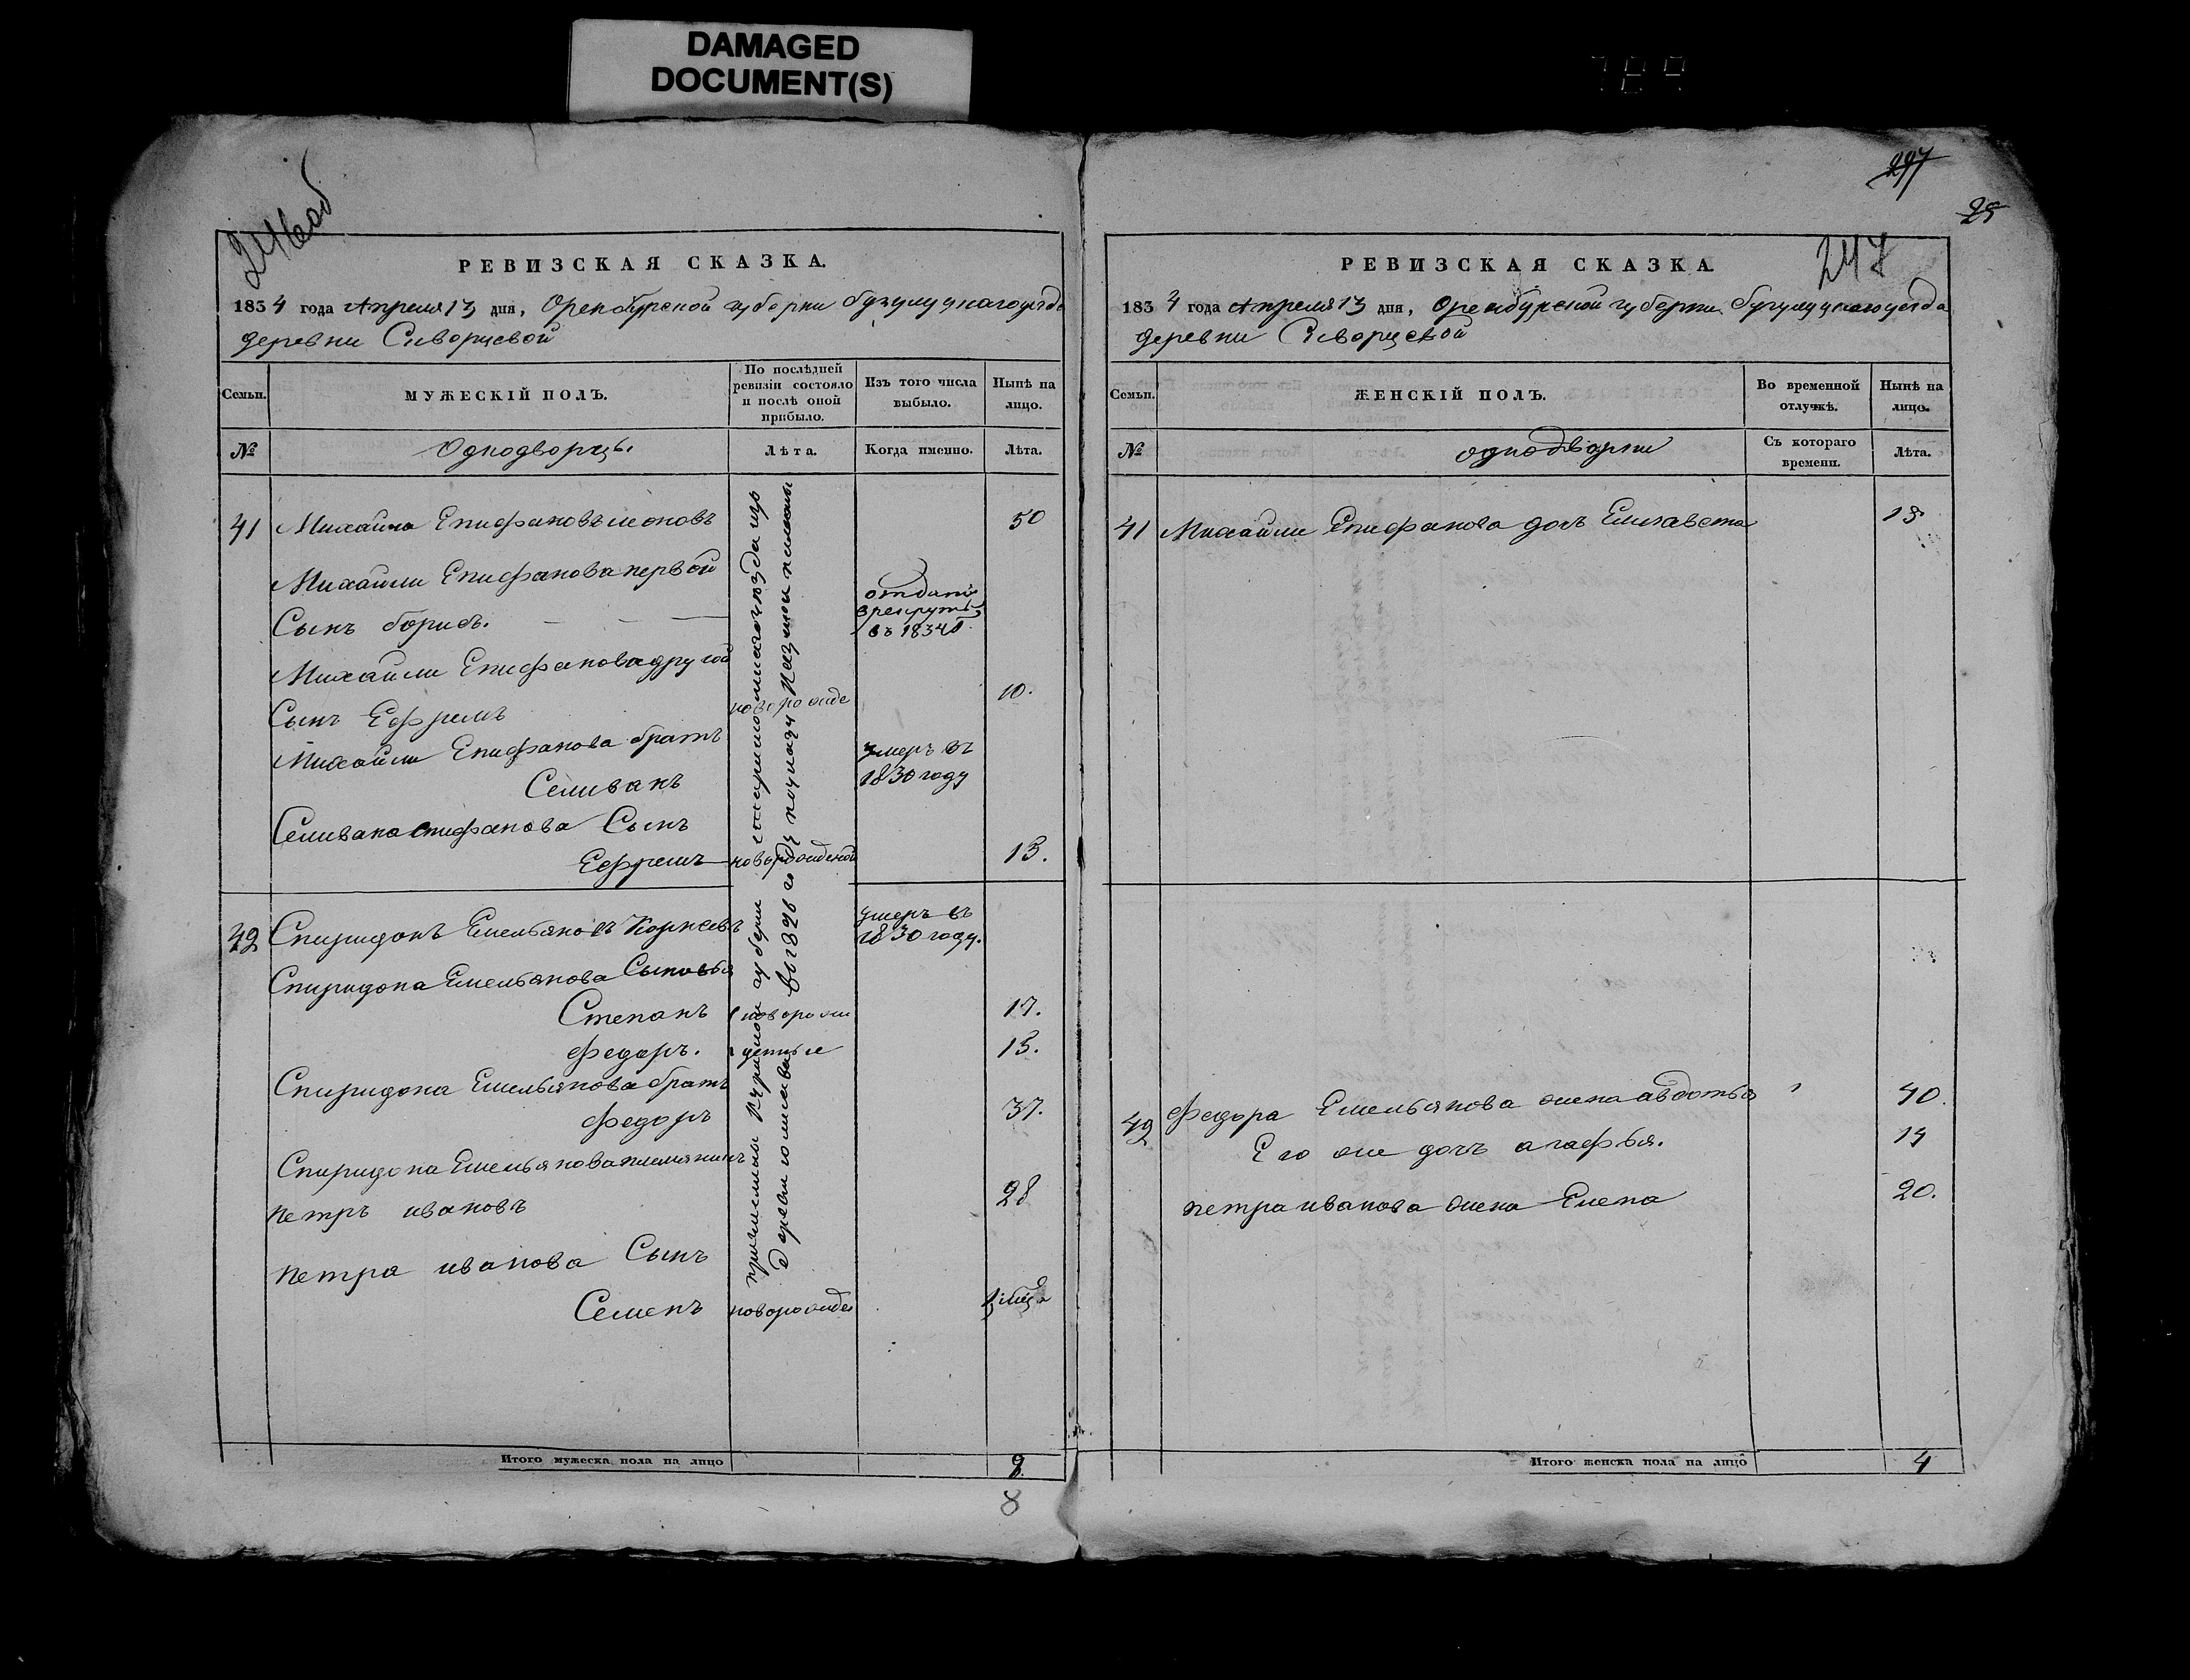 DAMAGED
DOCUMENT(S)
297
25
246об
РЕВИЗСКАЯ СКАЗКА.
1834 года Апреля 13 дня, Оренбурской губерни бузулуцкаго уезда
деревни Скворцевой
Семьи.
МУЖЕСКІЙ ПОЛЪ.
По послѣдней
ревизіи состояло
и послѣ оной
прибыло.
Изъ того числа
выбыло.
Нынѣ на
лицо.
№
Однодворцы.
Лѣта.
Когда именно.
Лѣта.
41 Михаила Епифановъ 50
Михайли Епифанова первой
Сынъ борисъ. отданъ
в рекруты
въ 1834
Михайли Епифанова другой
Сынъ Ефремъ новорожде 10.
Михайли Епифанова братъ
Селиванъ умеръ въ
1830 году
Селивана епифанова Сынъ
Ефремъ новорожденой 13.
42 Спиридонъ Емельяновъ Корневъ умеръ въ
1830 году.
Спиридона Емельянова Сыновья
Степанъ новорож 17.
федоръ. денные 13.
Спиридона Емельянова братъ
федоръ 37.
Спиридона Емельянова племянникъ
петръ ивановъ 28
петра иванова Сынъ
Семенъ новорожде
губерни
в 182 году
Итого мужеска пола на лицо 9
8
247
РЕВИЗСКАЯ СКАЗКА.
1834 года Апреля 13 дня, Оренбурской губерни бугулуцкаго уезда
деревни Скворцевой
Семьи.
ЖЕНСКІЙ ПОЛЪ.
Во временной
отлучкѣ.
Нынѣ на
лицо.
№
однодворки
Съ котораго
времени.
Лѣта.
41 Михайли Епифанова дочь Елизавета
42 федора Емельянова жена авдотья 40.
Его же дочь агафья. 14
петра иванова жена Елена 20.
Итого женска пола на лицо 4